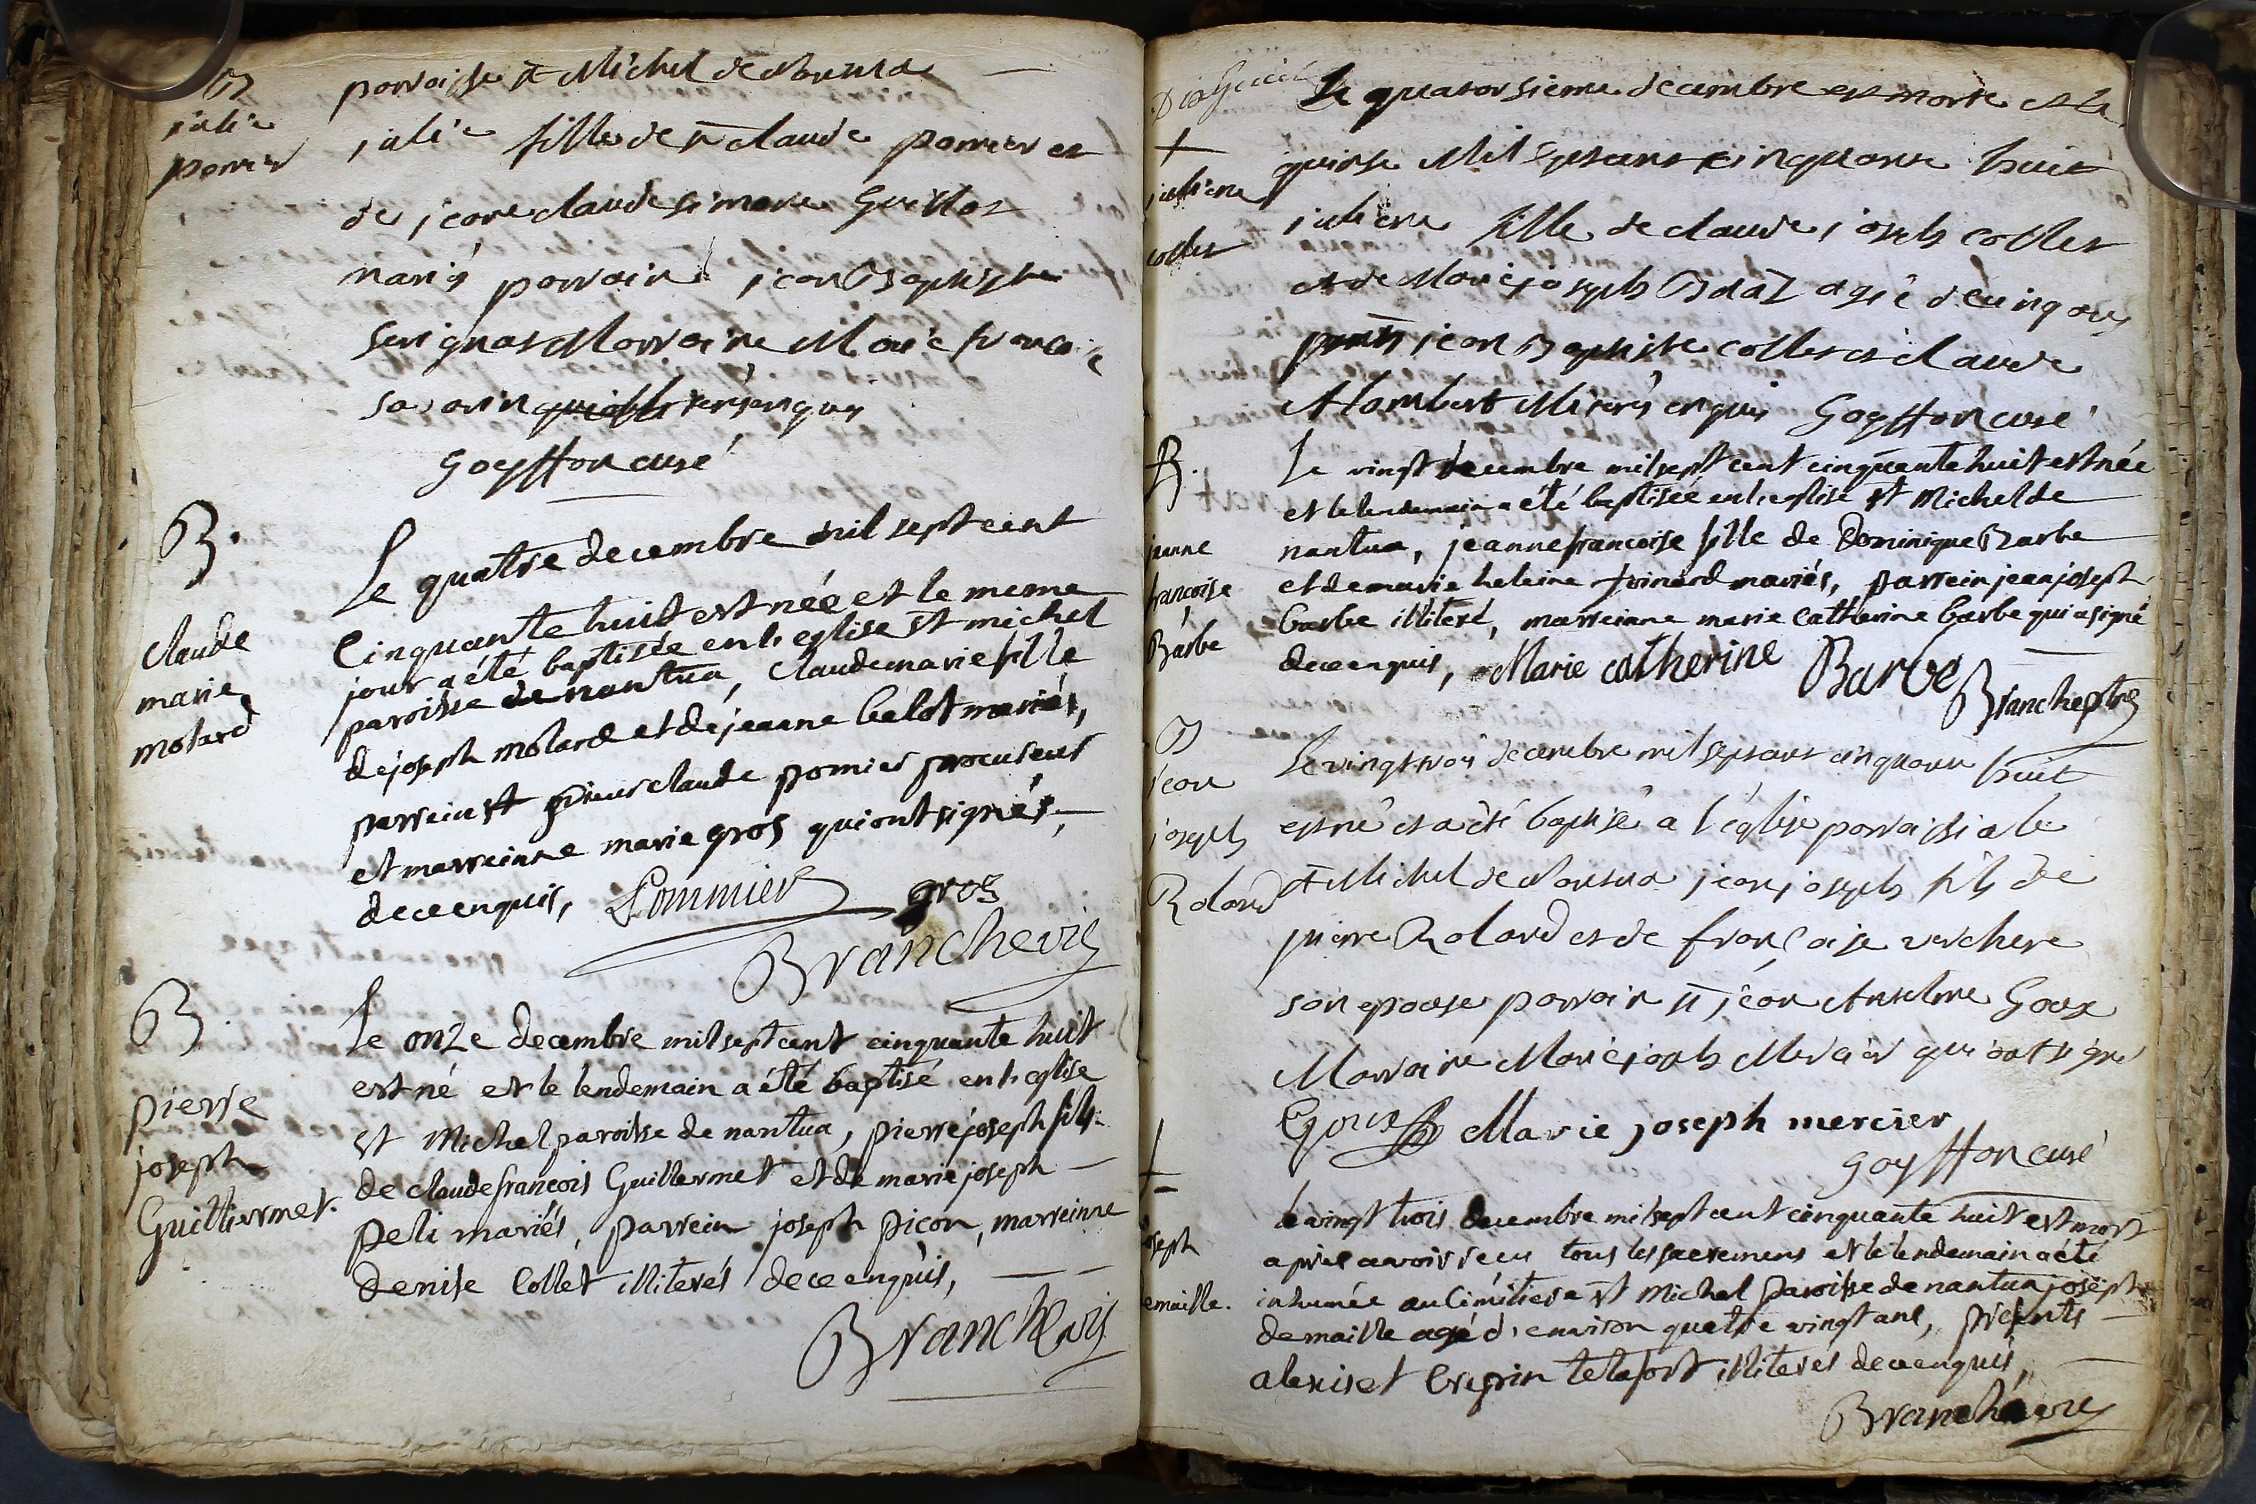 B
julie
pomier
parroisse st Michel de Nantua
julie fille de sr claude pomier et
de jeane claude simone Guillot
mariés parrain jean Baptiste
savignat Marraine Marie francoise
savarin illiterés enquis
Goyffon curé
B.
claude
marie
molard
Le quatre decembre mil sept cent
Cinquante huit est née et le meme
jour a été baptisée en l'eglise st michel
paroisse de nantua, Claudemarie fille
de joseph molard et de jeanne belot mariés,
parrein st sieur claude pomier procureur
et marreinne marie gros qui ont signés,
de ce enquis, Pommier gros
Branche vic
B.
pierre
joseph
Guilliermet.
Le onze decembre mil sept cent cinquante huit
est né et le lendemain a été baptisé en l'eglise
st Michel paroisse de nantua, pierre joseph fils
de claude francois Guillermet et de marie joseph
peli mariés, parrein joseph picon, marreinne
denise Collet illiterés de ce enquis,
Branche vic
+
juliene
collet
Le quatorsieme decembre est morte et le
quinse Mil sept cent cinquante huit
juliene fille de claude joseph collet
et de Marie joseph Bdaz agée de cinq ans
pnts jean Baptiste collet et claude
Alombert illiterés enquis Goyffon curé
B.
jeanne
francoise
Barbe
Le vingt decembre mil sept cent cinquante huit est née
et le lendemain a été baptisée en l'eglise st Michel de
nantua, jeanne francoise fille de Dominique Barbe
et de marie heleine poinard mariés, parrein jean joseph
barbe illiteré, marreinne marie Catherine barbe qui a signé
de ce enquis, Marie catherine Barbe
Branche ptre
B
jean
joseph
Roland
Le vingt trois decembre mil sept cent cinquante huit
est né et a été baptisé a l'église parroissiale
st Michel de Nantua jean joseph fils de
pierre Roland et de françoise verchere
son epouse parrain sr jean Anselme Goux
Marraine Marie joseph Mercier qui ont signé
Goux Marie joseph mercier
Goyffon curé
+
joseph
demaille.
le vingt trois decembre mil sept cent cinquante huit est mort
aprés avoir recu tous les sacremens et le lendemain a été
inhumée au Cimétiere st Michel paroisse de nantua joseph
demaille agé d'environ quatre vingt ans, présents
alexis et Crepin telafort illiterés de ce enquis,
Branche vic